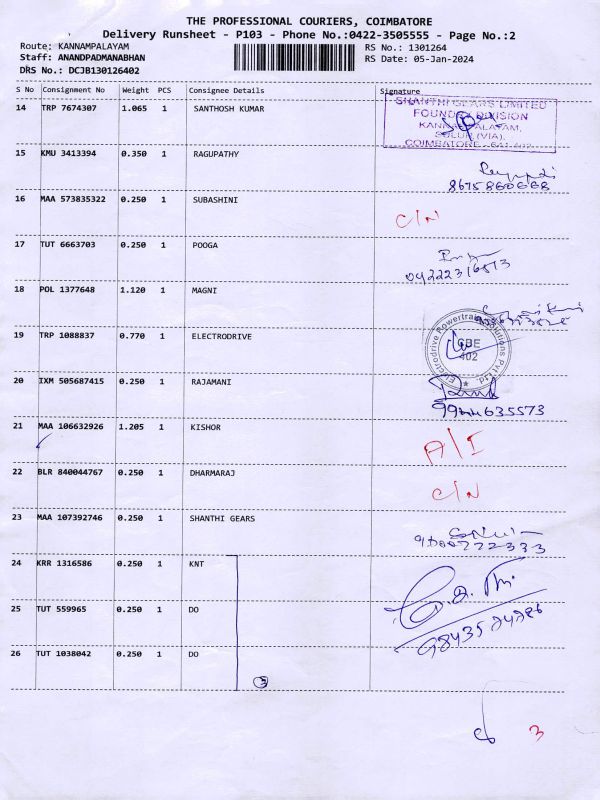 THE PROFESSIONAL COURIERS, COIMBATORE
Delivery Runsheet - P103 - Phone No.:0422-3505555 - Page No.:2
Route: KANNAMPALAYAM RS No.: 1301264
Staff: ANANDPADMANABHAN RS Date: 05-Jan-2024
DRS No.: DCJB130126402
S No Consignment No Weight PCS Consignee Details Signature
14 TRP 7674307 1.065 1 SANTHOSH KUMAR
SHANTHI GEARS LIMITED
FOUNDRY DIVISION
KANNAMPALAYAM,
SULUR (VIA),
COIMBATORE - 641 402
15 KMU 3413394 0.350 1 RAGUPATHY
8675860668
16 MAA 573835322 0.250 1 SUBASHINI
C/N
17 TUT 6663703 0.250 1 POOGA
18 POL 1377648 1.120 1 MAGNI
19 TRP 1088837 0.770 1 ELECTRODRIVE
Electrodrive Powertrain Solutions Pvt Ltd.
CBE
402
20 IXM 505687415 0.250 1 RAJAMANI
9944635573
21 MAA 106632926 1.205 1 KISHOR
A/I
22 BLR 840044767 0.250 1 DHARMARAJ
C/N
23 MAA 107392746 0.250 1 SHANTHI GEARS
9500722333
24 KRR 1316586 0.250 1 KNT
25 TUT 559965 0.250 1 DO
26 TUT 1038042 0.250 1 DO
3
3